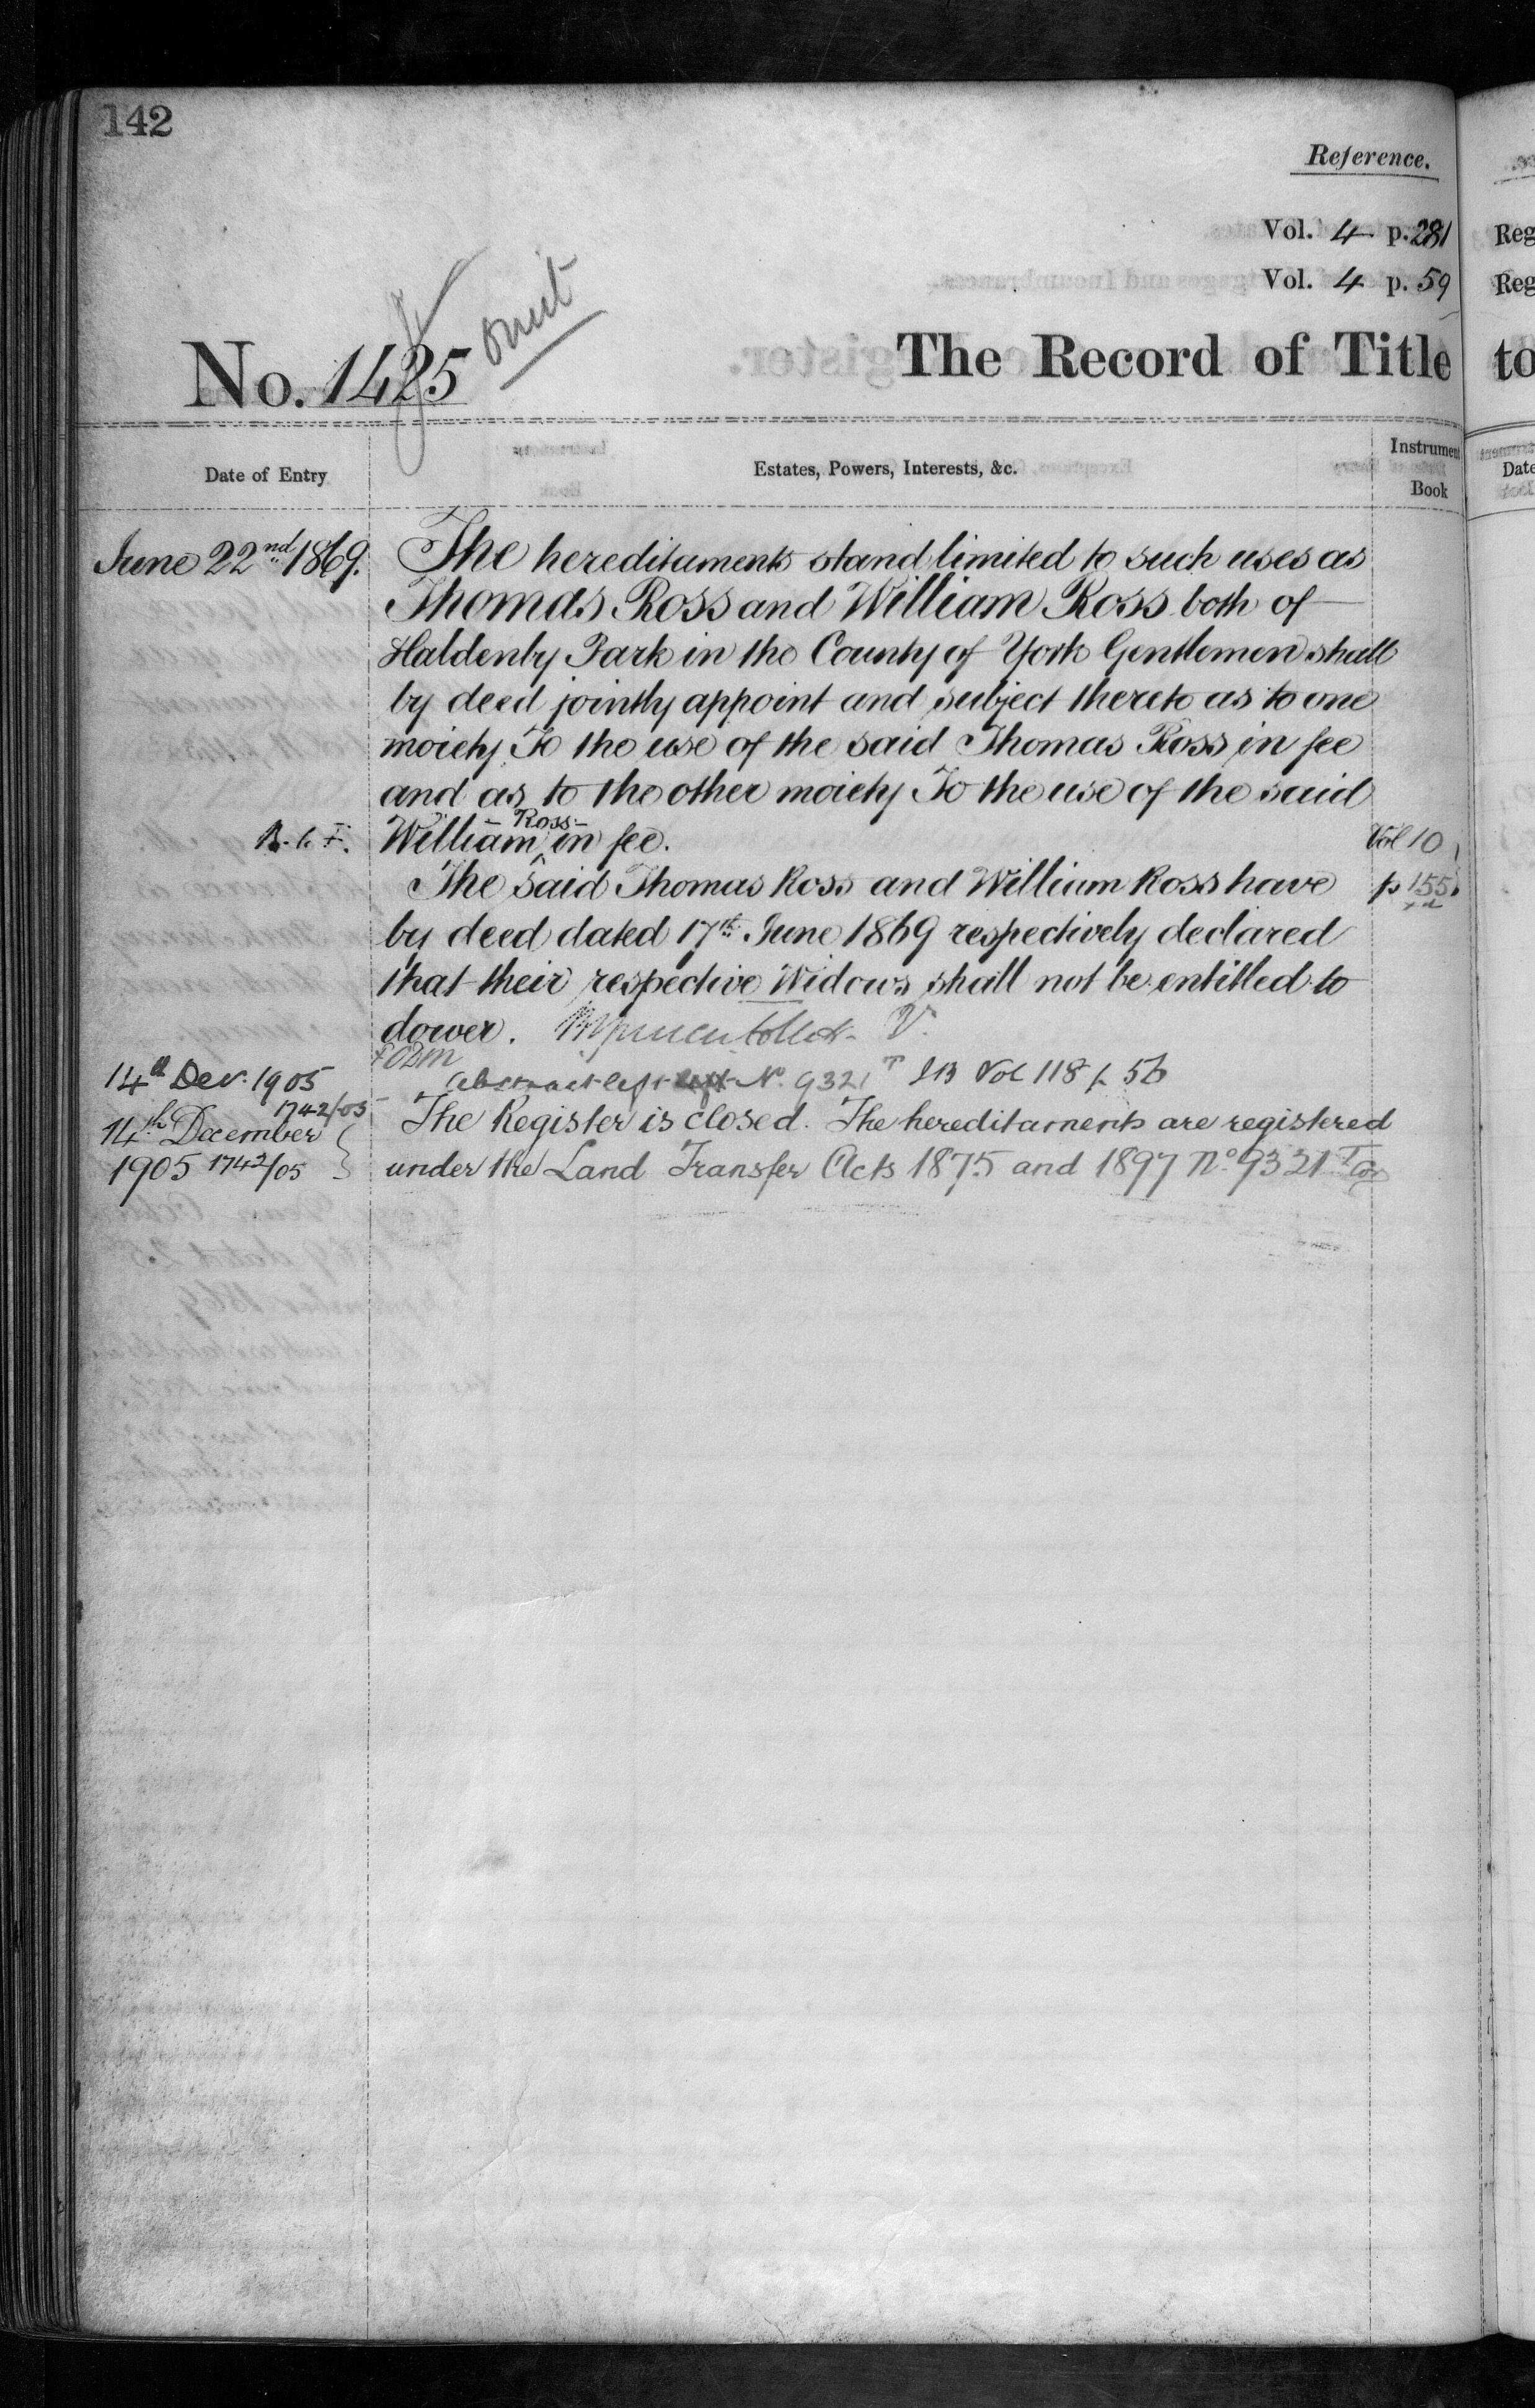 142
Reference.
Vol. 4 p. 281
Vol. 4 p. 59
omit
No. 1425
The Record of Title
Date of Entry
Estates, Powers, Interests, &c.
Instrument
Book
June 22nd 1869.
The hereditaments stand limited to such uses as
Thomas Ross and William Ross both of
Haldenby Park in the County of York Gentlemen shall
by deed jointly appoint and subject thereto as to one
moiety To the use of the said Thomas Ross in fee
and as to the other moiety To the use of the said
William Ross in fee.
Vol 10
The said Thomas Ross and William Ross have
p 155
by deed dated 17th June 1869 respectively declared
that their respective Widows shall not be entitled to
dower.
14th Dec. 1905
Abstract left No. 9321 T IB Vol 118 p. 56
1742/05
14th December
1905 1742/05
The Register is closed. The hereditaments are registered
under the Land Transfer Acts 1875 and 1897 No. 9321 T
Reg
Reg
to
Date